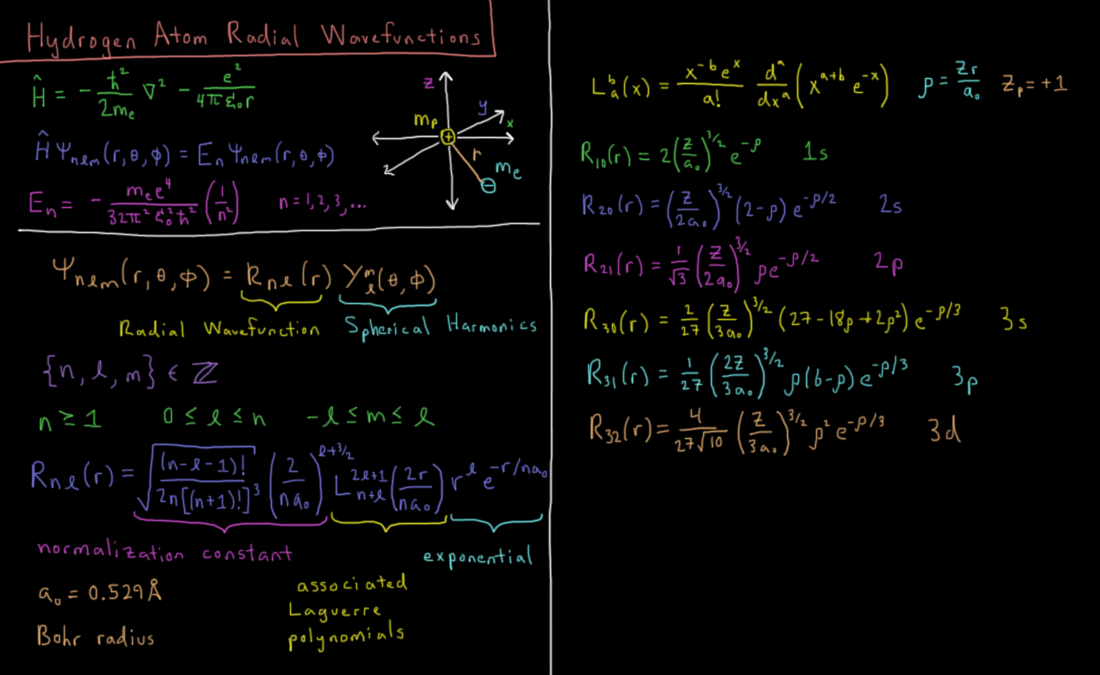 Hydrogen Atom Radial Wavefunctions
Ĥ = -ħ²/2mₑ ∇² - e²/4πε₀r
ĤΨnlm(r,θ,φ) = EnΨnlm(r,θ,φ)
En = - mₑe⁴/32π²ε₀²ħ² (1/n²)   n=1,2,3,...
z
y
x
mp
+
r
mₑ
−
Ψnlm(r,θ,φ) = Rnl(r) Yₗᵐ(θ,φ)
Radial Wavefunction   Spherical Harmonics
{n, l, m} ∈ ℤ
n ≥ 1   0 ≤ l ≤ n   -l ≤ m ≤ l
Rnl(r) = √((n-l-1)!/2n[(n+1)!]³) (2/na₀)^(l+3/2) L_(n+l)^(2l+1) (2r/na₀) r^l e^(-r/na₀)
normalization constant
exponential
associated
Laguerre
polynomials
a₀ = 0.529Å
Bohr radius
L_a^b(x) = x^(-b)e^x/a! d^a/dx^a (x^(a+b) e^(-x))   ρ = Zr/a₀   Zp = +1
R₁₀(r) = 2(Z/a₀)^(3/2) e^(-ρ)   1s
R₂₀(r) = (Z/2a₀)^(3/2) (2-ρ) e^(-ρ/2)   2s
R₂₁(r) = 1/√3 (Z/2a₀)^(3/2) ρe^(-ρ/2)   2p
R₃₀(r) = 2/27 (Z/3a₀)^(3/2) (27-18ρ+2ρ²) e^(-ρ/3)   3s
R₃₁(r) = 1/27 (2Z/3a₀)^(3/2) ρ(6-ρ) e^(-ρ/3)   3p
R₃₂(r) = 4/27√10 (Z/3a₀)^(3/2) ρ² e^(-ρ/3)   3d